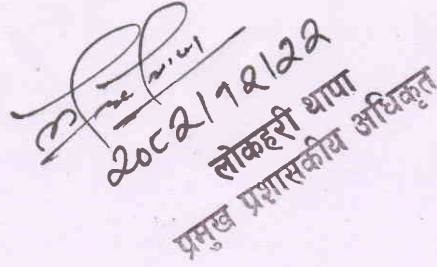 २०८२/१२/२२
लोकहरी थापा
प्रमुख प्रशासकीय अधिकृत